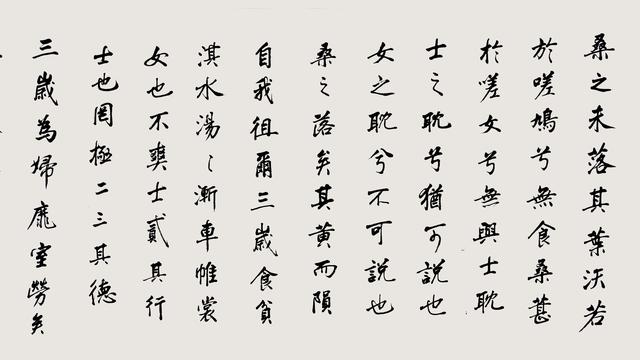 桑之未落其葉沃若
於嗟鳩兮無食桑葚
於嗟女兮無與士耽
士之耽兮猶可說也
女之耽兮不可說也
桑之落矣其黄而隕
自我徂爾三歲食貧
淇水湯〻漸車帷裳
女也不爽士貳其行
士也罔極二三其德
三歲為婦靡室勞矣